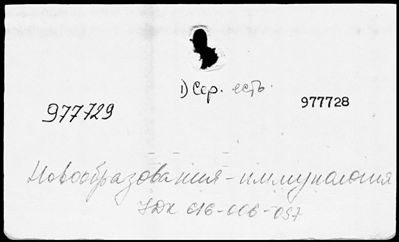 1) Сер. есть.
977729
977728
Новообразования - иммунология
УДК 616-006-097